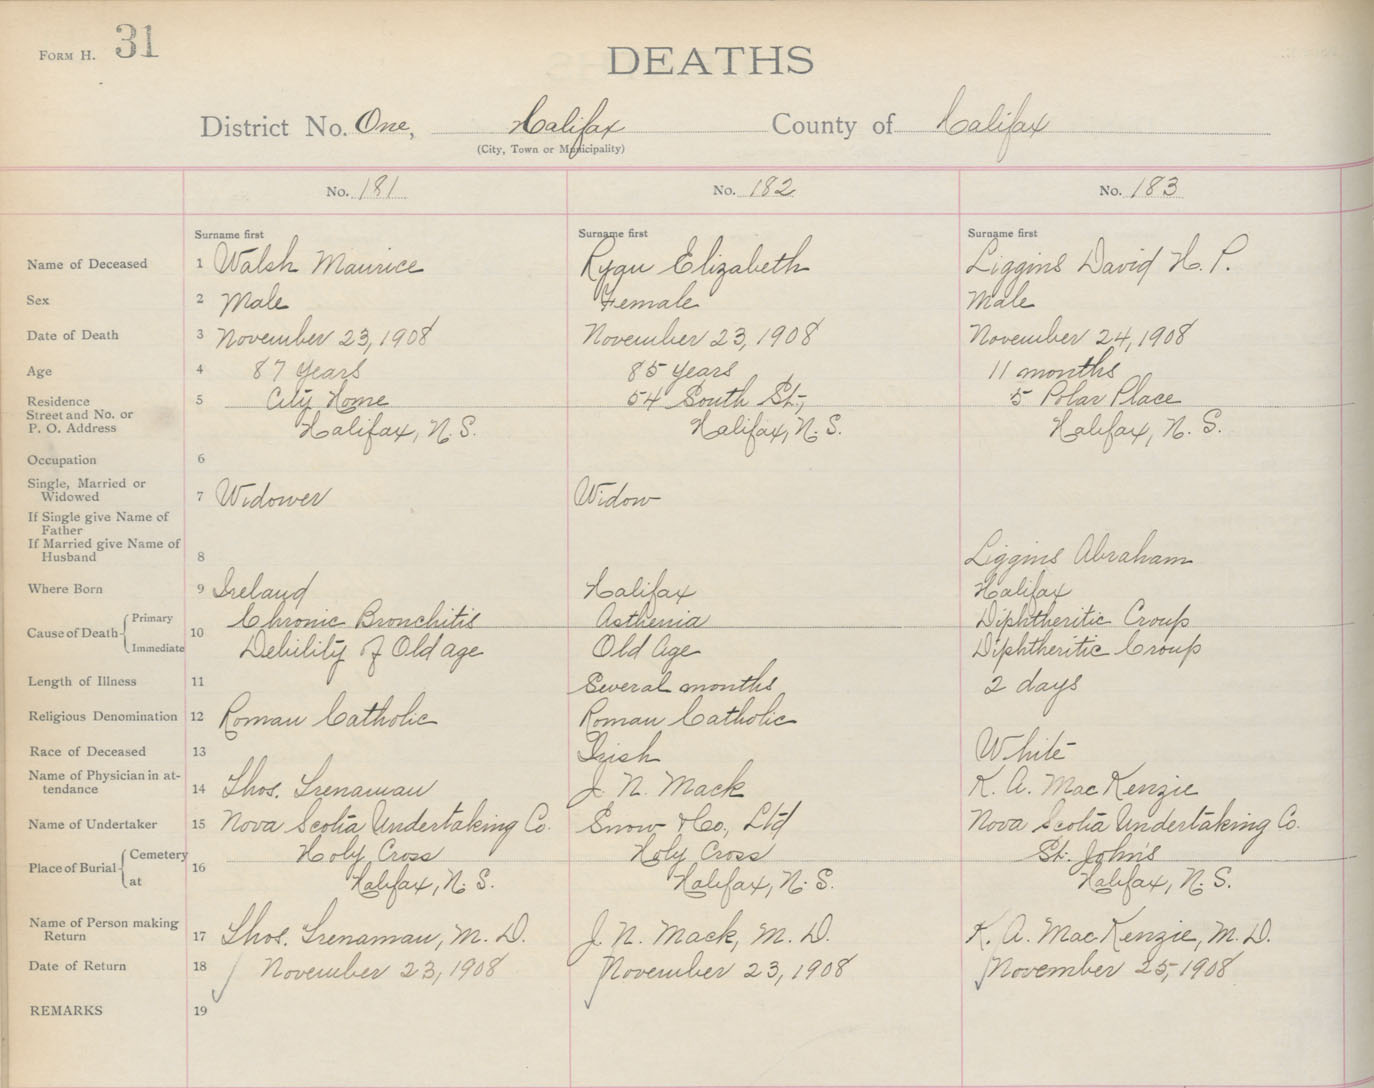 FORM H. 31
DEATHS
District No. One, Halifax County of Halifax
(City, Town or Municipality)
No. 181 No. 182 No. 183
Surname first Surname first Surname first
Name of Deceased 1 Walsh Maurice Ryan Elizabeth Liggins David H. P.
Sex 2 Male Female Male
Date of Death 3 November 23, 1908 November 23, 1908 November 24, 1908
Age 4 87 years 85 years 11 months
Residence 5 City Home 54 South St., 5 Polar Place
Street and No. or
P. O. Address Halifax, N. S. Halifax, N. S. Halifax, N. S.
Occupation 6
Single, Married or
Widowed 7 Widower Widow
If Single give Name of
Father
If Married give Name of
Husband 8 Liggins Abraham
Where Born 9 Ireland Halifax Halifax
Cause of Death Primary 10 Chronic Bronchitis Asthenia Diphtheritic Croup
Immediate Debility of Old age Old Age Diphtheritic Croup
Length of Illness 11 Several months 2 days
Religious Denomination 12 Roman Catholic Roman Catholic
Race of Deceased 13 Irish White
Name of Physician in at-
tendance 14 Thos. Trenaman J. N. Mack K. A. MacKenzie
Name of Undertaker 15 Nova Scotia Undertaking Co. Snow & Co., Ltd Nova Scotia Undertaking Co.
Place of Burial Cemetery 16 Holy Cross Holy Cross St. John's
at Halifax, N. S. Halifax, N. S. Halifax, N. S.
Name of Person making
Return 17 Thos. Trenaman, M. D. J. N. Mack, M. D. K. A. MacKenzie, M. D.
Date of Return 18 November 23, 1908 November 23, 1908 November 25, 1908
REMARKS 19